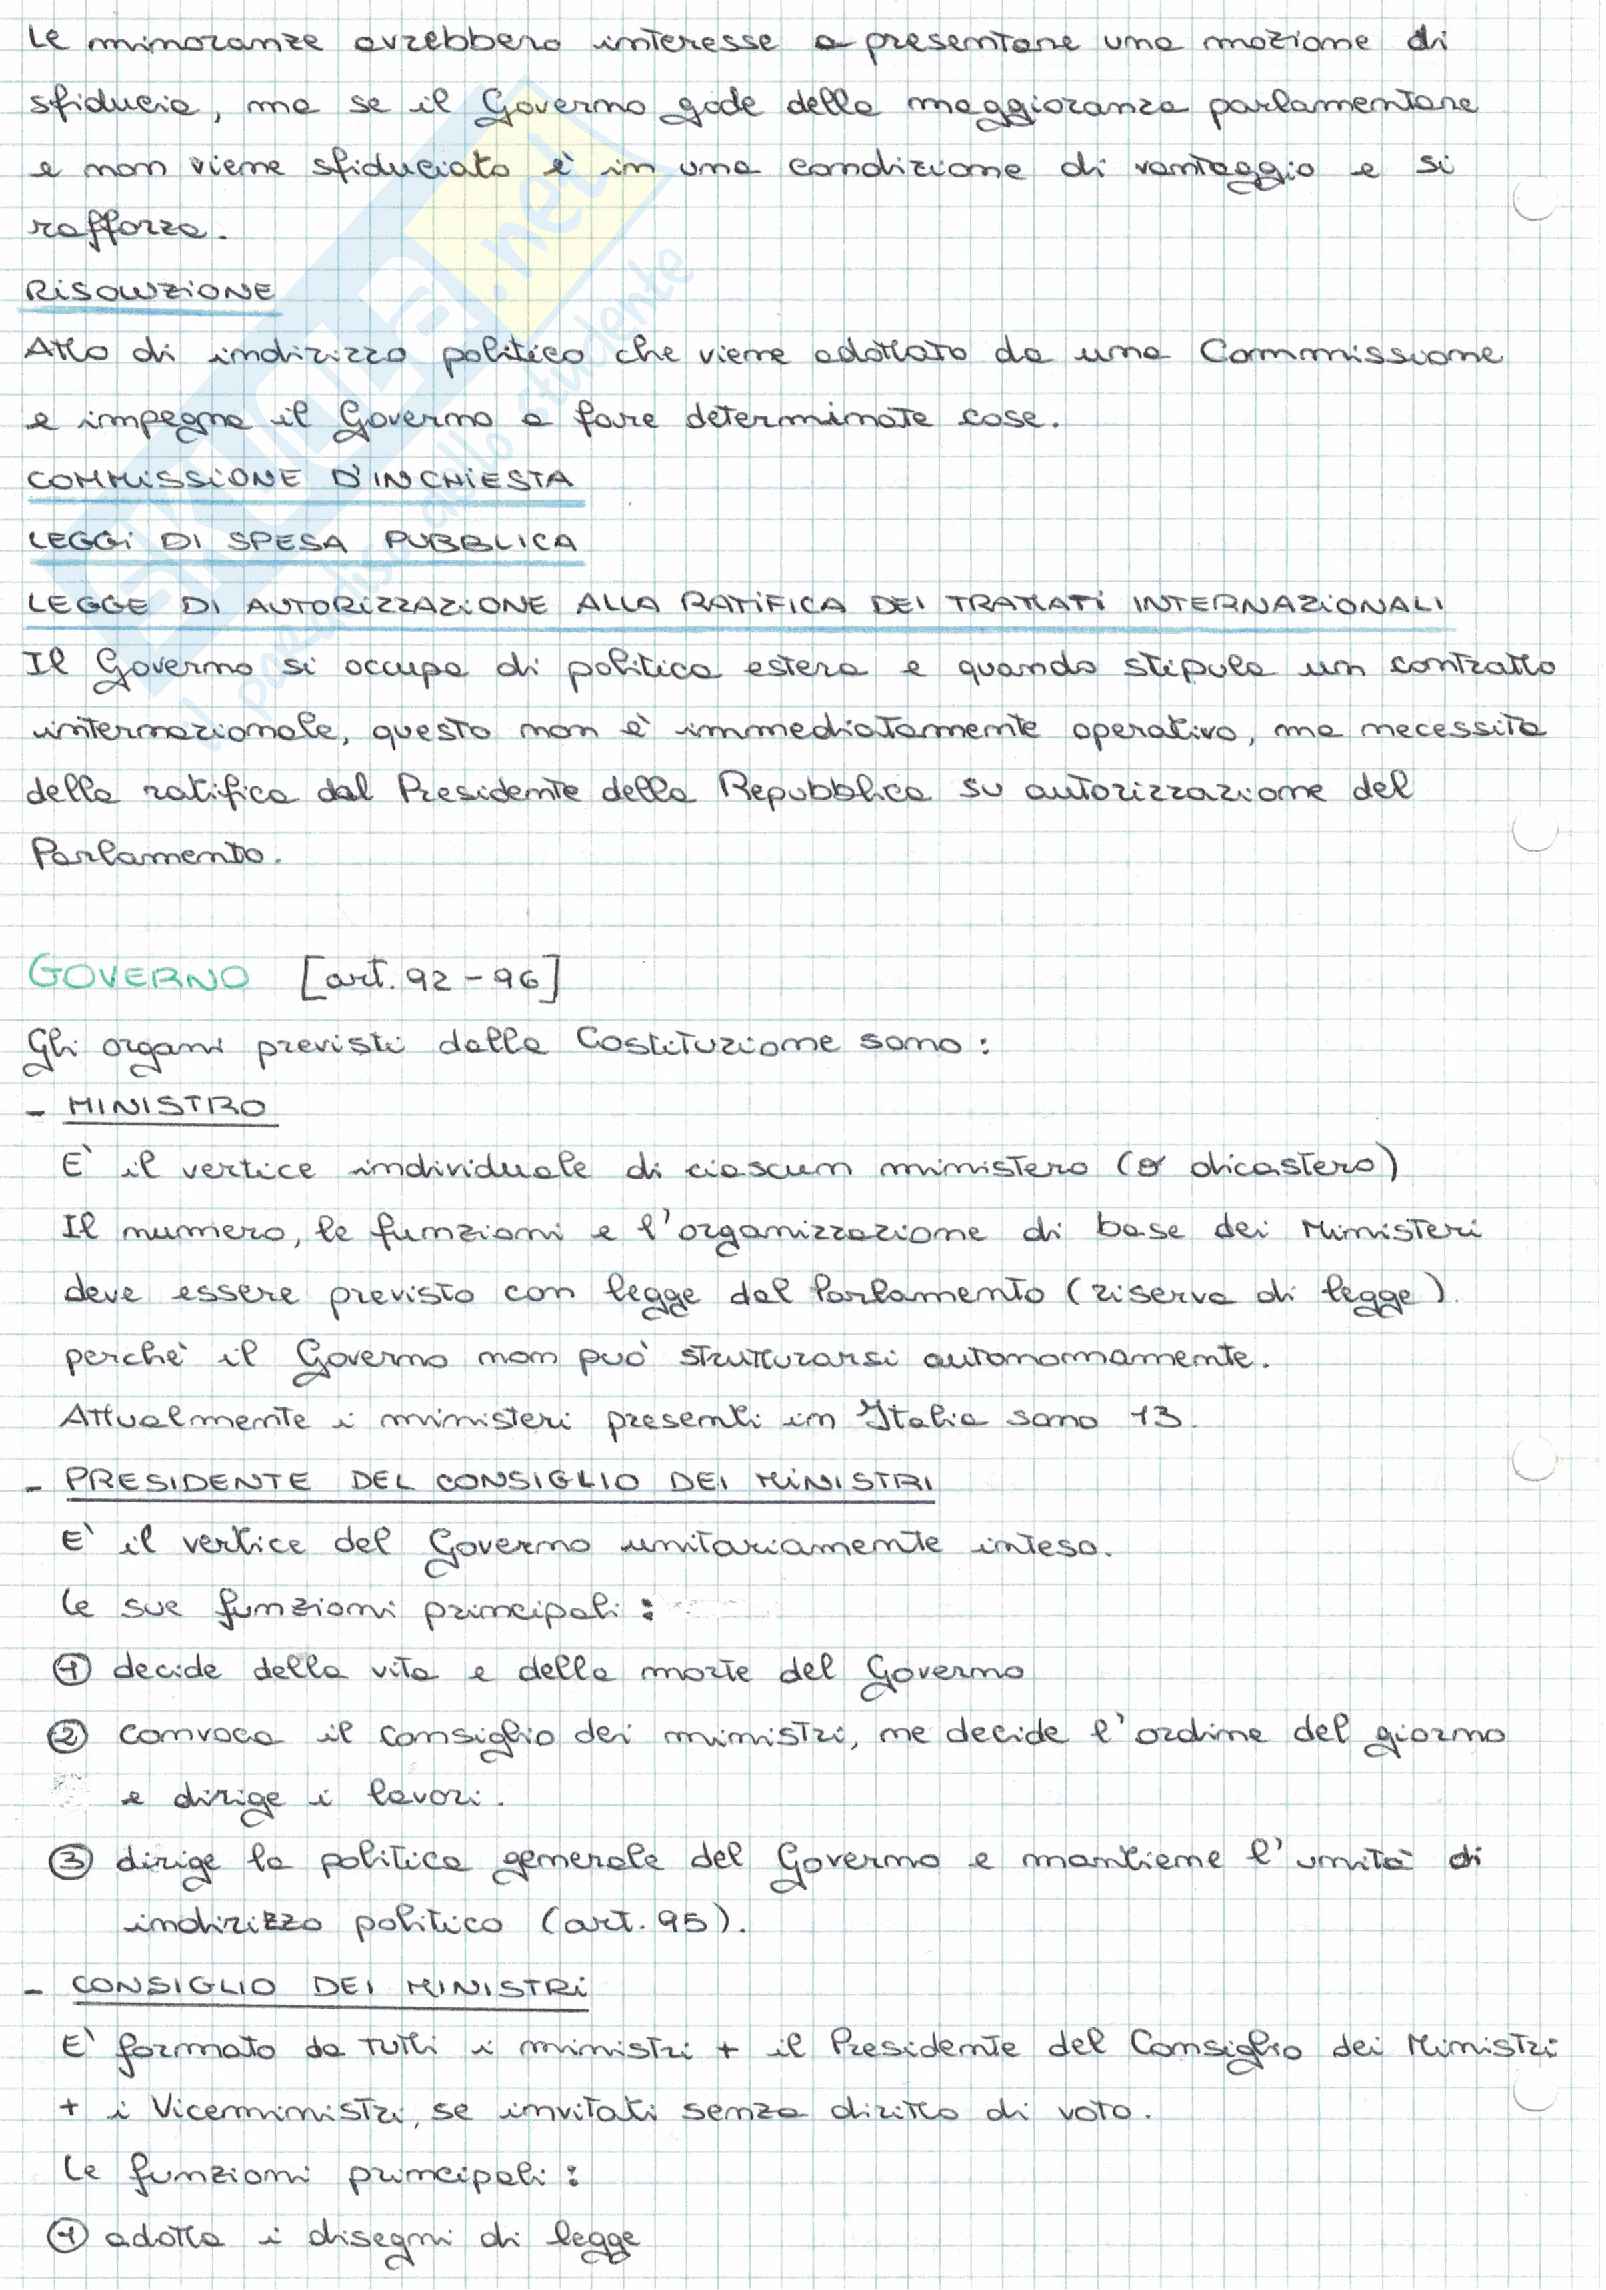 Le minoranze avrebbero interesse a presentare una mozione di
sfiducia, ma se il Governo gode della maggioranza parlamentare
e non viene sfiduciato è in una condizione di vantaggio e si
rafforza.
RISOLUZIONE
Atto di indirizzo politico che viene adottato da una Commissione
e impegna il Governo a fare determinate cose.
COMMISSIONE D'INCHIESTA
LEGGI DI SPESA PUBBLICA
LEGGE DI AUTORIZZAZIONE ALLA RATIFICA DEI TRATTATI INTERNAZIONALI
Il Governo si occupa di politica estera e quando stipula un contratto
internazionale, questo non è immediatamente operativo, ma necessita
della ratifica dal Presidente della Repubblica su autorizzazione del
Parlamento.
GOVERNO [art. 92 - 96]
Gli organi previsti dalla Costituzione sono:
- MINISTRO
E' il vertice individuale di ciascun ministero (o dicastero)
Il numero, le funzioni e l'organizzazione di base dei Ministeri
deve essere previsto con legge dal Parlamento (riserva di legge)
perchè il Governo non può strutturarsi autonomamente.
Attualmente i ministeri presenti in Italia sono 13.
- PRESIDENTE DEL CONSIGLIO DEI MINISTRI
E' il vertice del Governo unitariamente inteso.
Le sue funzioni principali:
① decide della vita e della morte del Governo
② convoca il consiglio dei ministri, ne decide l'ordine del giorno
e dirige i lavori.
③ dirige la politica generale del Governo e mantiene l'unità di
indirizzo politico (art. 95).
- CONSIGLIO DEI MINISTRI
E' formato da tutti i ministri + il Presidente del Consiglio dei Ministri
+ i Viceministri, se invitati senza diritto di voto.
Le funzioni principali:
① adotta i disegni di legge